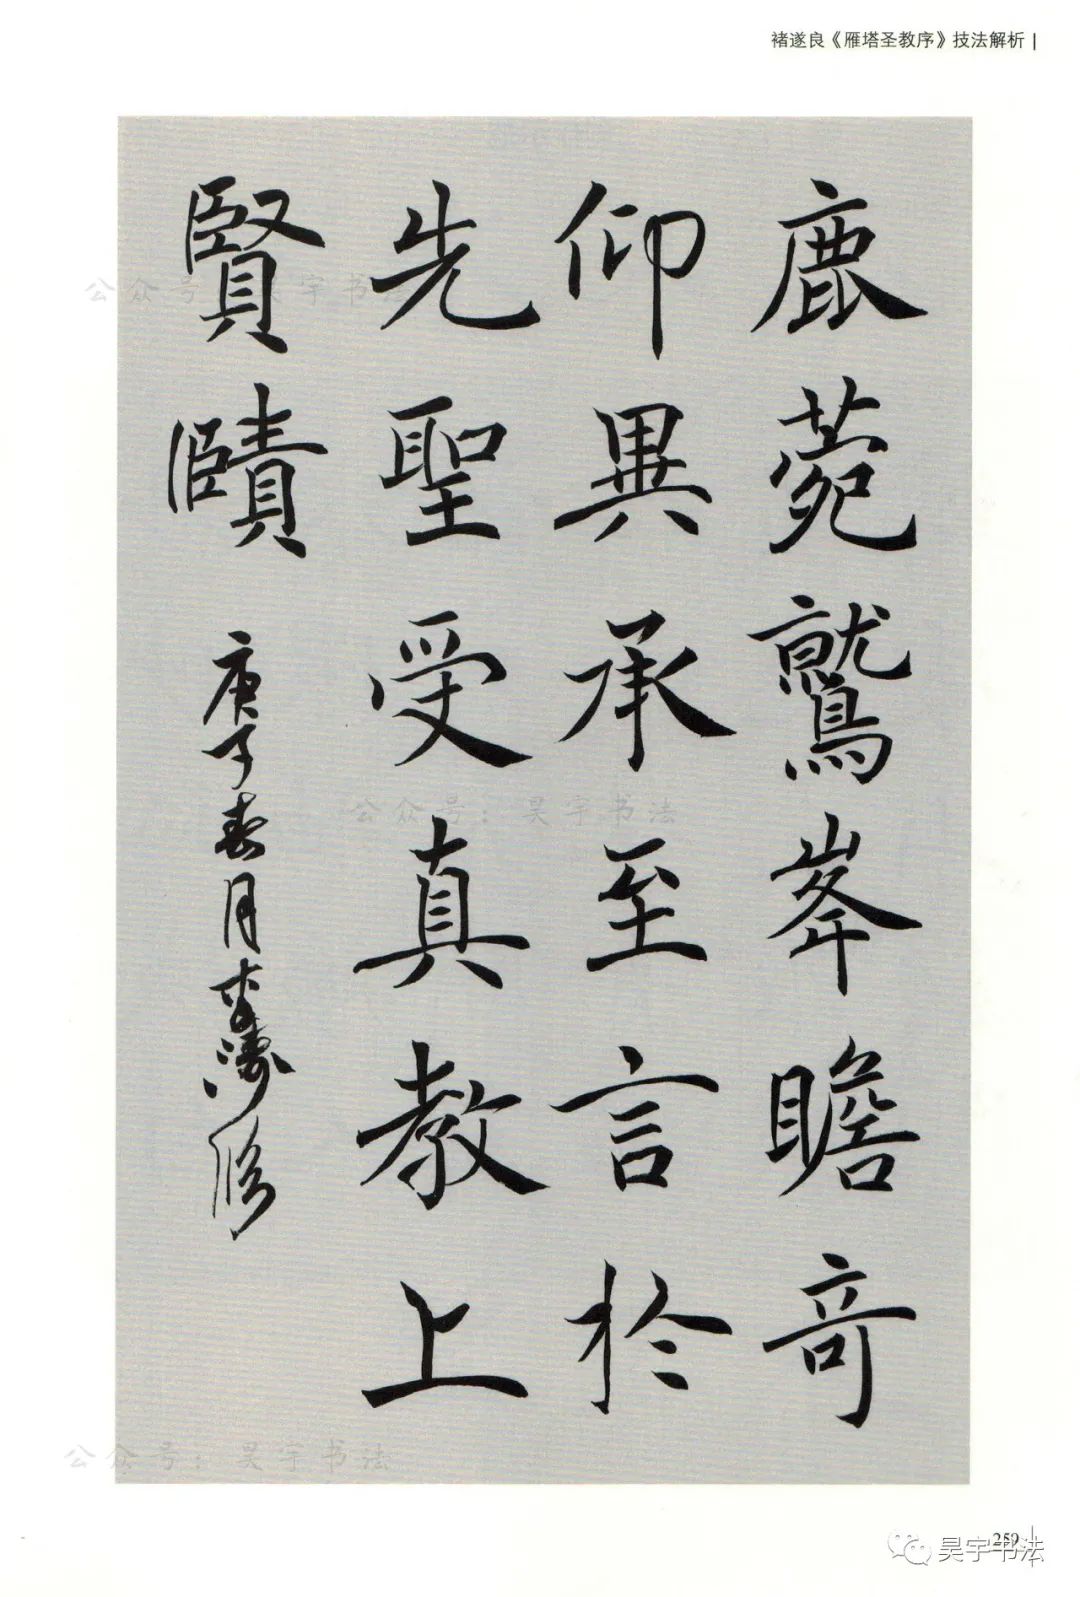 褚遂良《雁塔圣教序》技法解析
鹿菀鷲峯瞻奇
仰異承至言於
先聖受真教上
賢賾
庚子春月
公众号：昊宇书法
公众号：昊宇书法
公众号：昊宇书法
259
昊宇书法